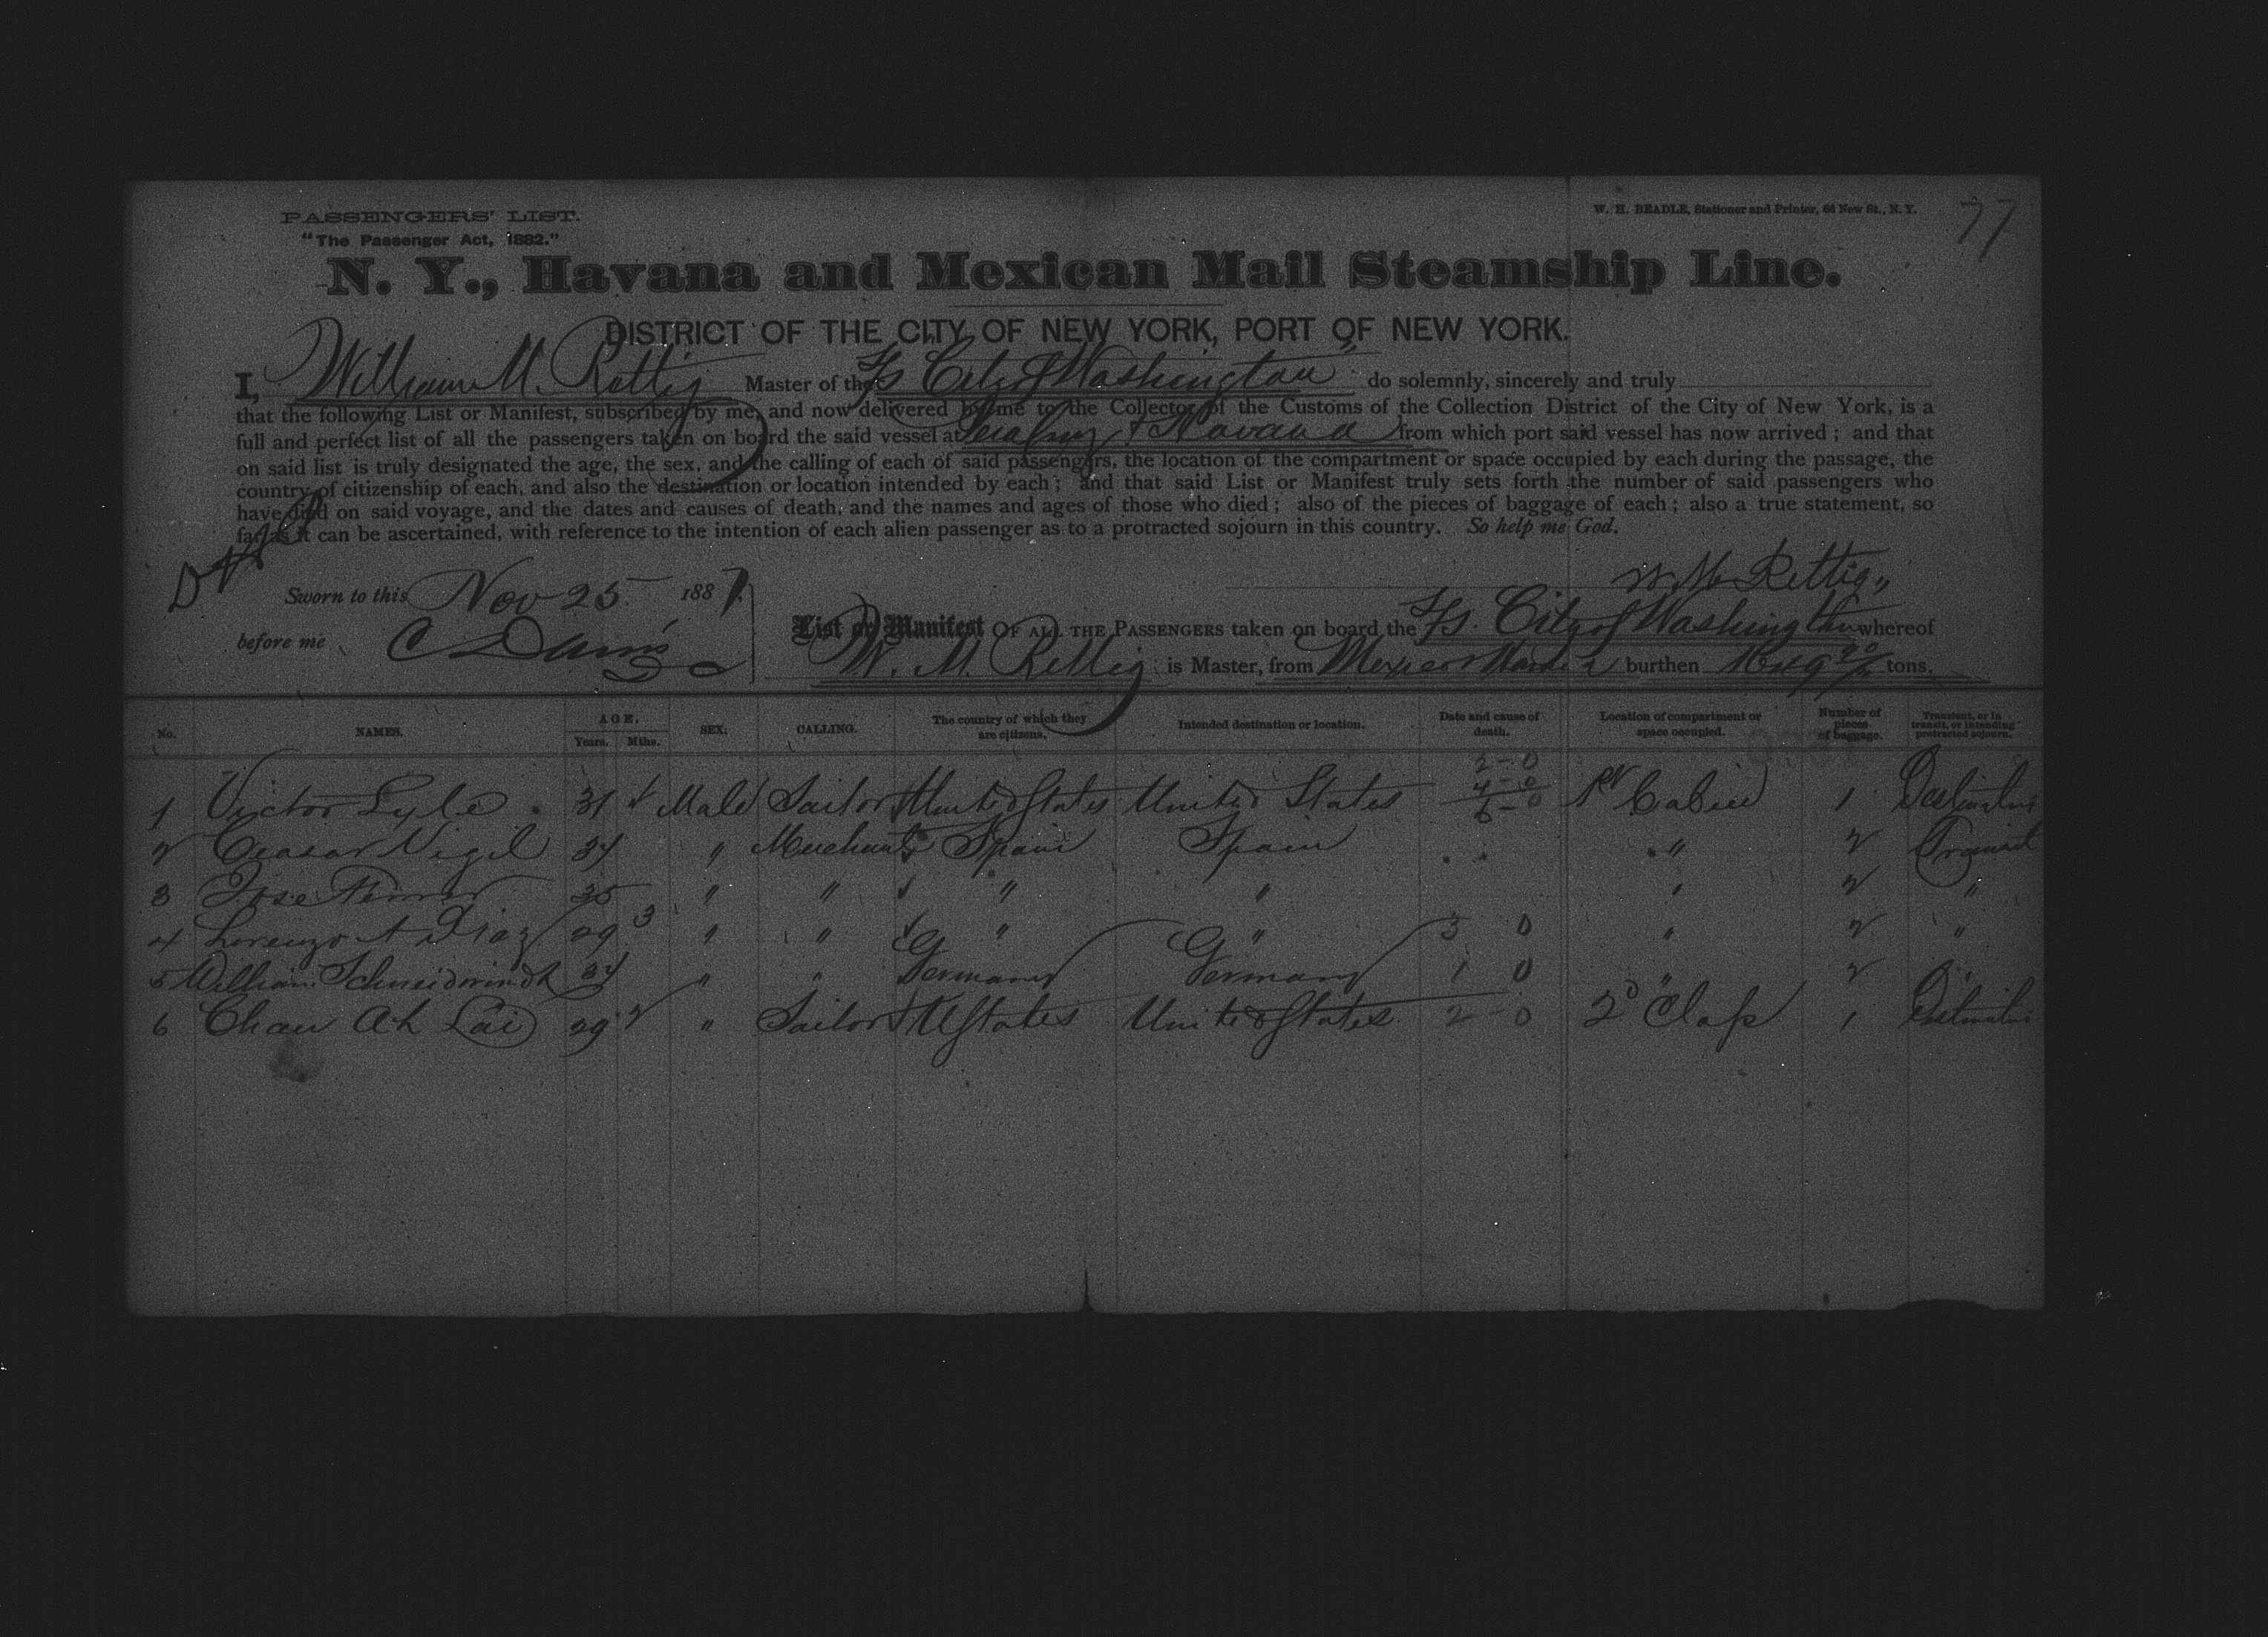 PASSENGERS' LIST.
"The Passenger Act, 1882."
W. H. BEADLE, Stationer and Printer, 66 New St., N. Y.
77
N. Y., Havana and Mexican Mail Steamship Line.
DISTRICT OF THE CITY OF NEW YORK, PORT OF NEW YORK.
I, William M. Rettig Master of the S/s City of Washington do solemnly, sincerely and truly
that the following List or Manifest, subscribed by me, and now delivered by me to the Collector of the Customs of the Collection District of the City of New York, is a
full and perfect list of all the passengers taken on board the said vessel at Vera Cruz & Havana from which port said vessel has now arrived; and that
on said list is truly designated the age, the sex, and the calling of each of said passengers, the location of the compartment or space occupied by each during the passage, the
country of citizenship of each, and also the destination or location intended by each; and that said List or Manifest truly sets forth the number of said passengers who
have died on said voyage, and the dates and causes of death, and the names and ages of those who died; also of the pieces of baggage of each; also a true statement, so
far as it can be ascertained, with reference to the intention of each alien passenger as to a protracted sojourn in this country. So help me God.
W. M. Rettig
Sworn to this Nov 25 1887
before me
List or Manifest OF ALL THE PASSENGERS taken on board the S/s. City of Washington whereof
W. M. Rettig is Master, from Mexico & burthen tons.
No. NAMES. AGE. Years. Mths. SEX. CALLING. The country of which they are citizens. Intended destination or location. Date and cause of death. Location of compartment or space occupied. Number of pieces of baggage. Transient, or in transit, or intending protracted sojourn.
2-0
4-0
6-0
1 Victor Lyle 31 Male Sailor United States United States 1st Cabin 1 Destination
2 Ceasar Vigil 34 " Merchant Spain Spain " 2 Transit
3 Jose 35 " " " " " 2 "
4 Lorenzo A Diaz 29 3 " " " " 3 0 " 2 "
5 William Schneidwindt 34 " " Germany Germany 1 0 " 2 "
6 Chau Ah Lai 29 2 " Sailor U States United States 2-0 2d Class 1 Destination